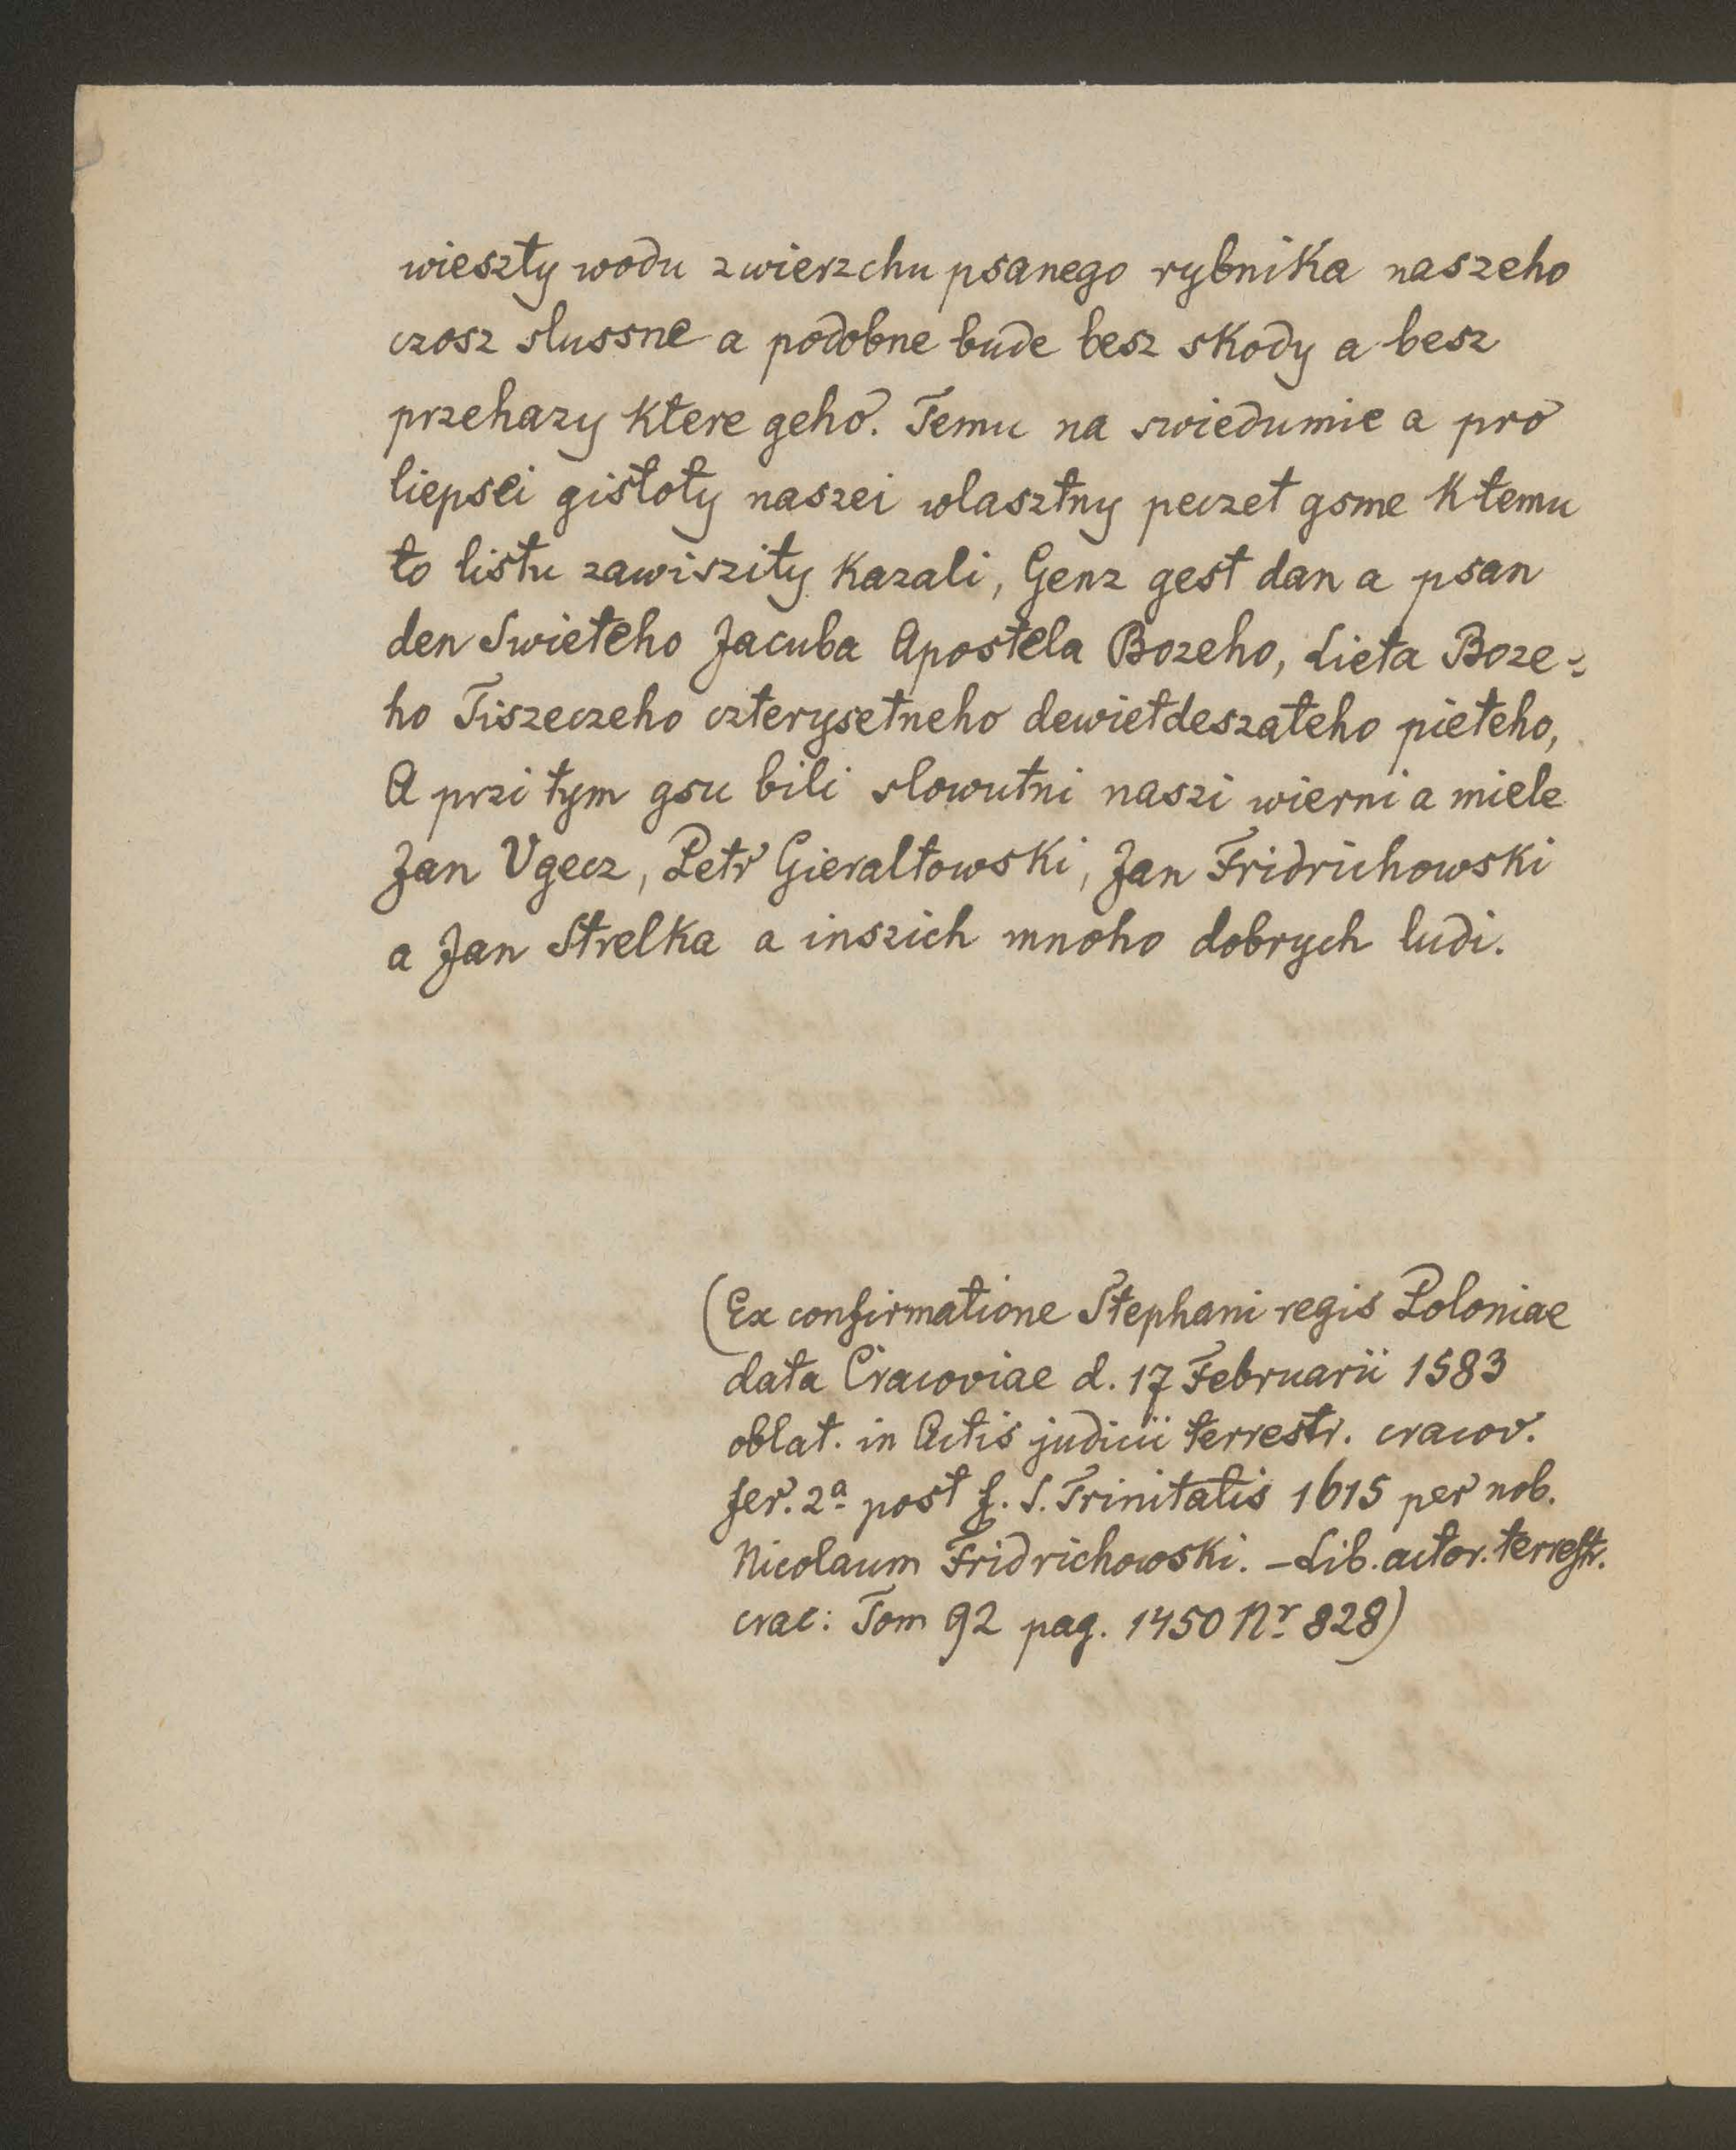 wieszty wodu zwierzchu psanego rybnika naszeho
czosz slussne a podobne bude besz skody a besz
przehazy ktere geho. Temu na swiedumie a pro
liepsei gistoty naszei wlasztny peczet gsme ktemu
to listu zawiszity kazali, Genz gest dan a psan
den Swieteho Jacuba Apostela Bozeho, Lieta Boze=
ho Tiszeczeho czterysetneho dewietdeszateho pieteho,
A przi tym gsu bili slowutni naszi wierni a miele
Jan Vgecz, Petr Gieraltowski, Jan Fridrichowski
a Jan Strelka a inszich mnoho dobrych ludi.
(Ex confirmatione Stephani regis Poloniae
data Cracoviae d. 17 Februarii 1583
oblat. in Actis judicii terrestr. cracov.
fer. 2ª post f. S. Trinitatis 1615 per nob.
Nicolaum Fridrichowski. – Lib. actor. terrestr.
crac: Tom 92 pag. 1450 Nr 828)